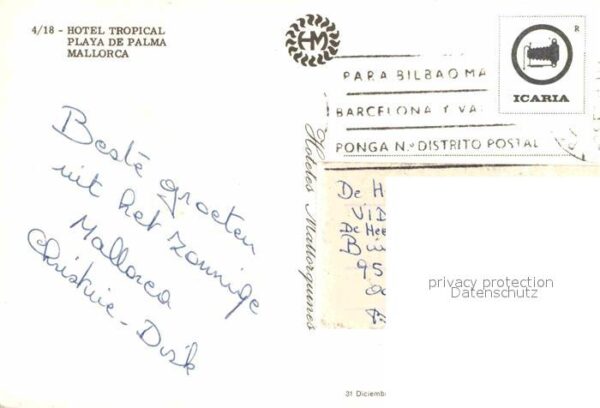 4/18 - HOTEL TROPICAL
PLAYA DE PALMA
MALLORCA
HM
R
ICARIA
PARA BILBAO MA
BARCELONA Y VA
PONGA N.º DISTRITO POSTAL
Hoteles Mallorquines
Beste groeten
uit het zonnige
Mallorca
Christine - Dirk
De H
VID
De Hee
95
privacy protection
Datenschutz
31 Diciemb